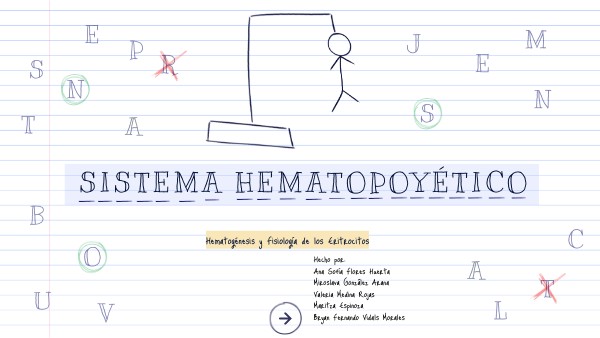 E
P
R
S
N
T
A
J
M
E
N
S
SISTEMA HEMATOPOYÉTICO
B
O
U
V
C
A
T
L
Hematogénesis y fisiología de los Eritrocitos
Hecho por:
Ana Sofía Flores Huerta
Miroslava González Arana
Valeria Medina Rojas
Maritza Espinoza
Bryan Fernando Vidals Morales